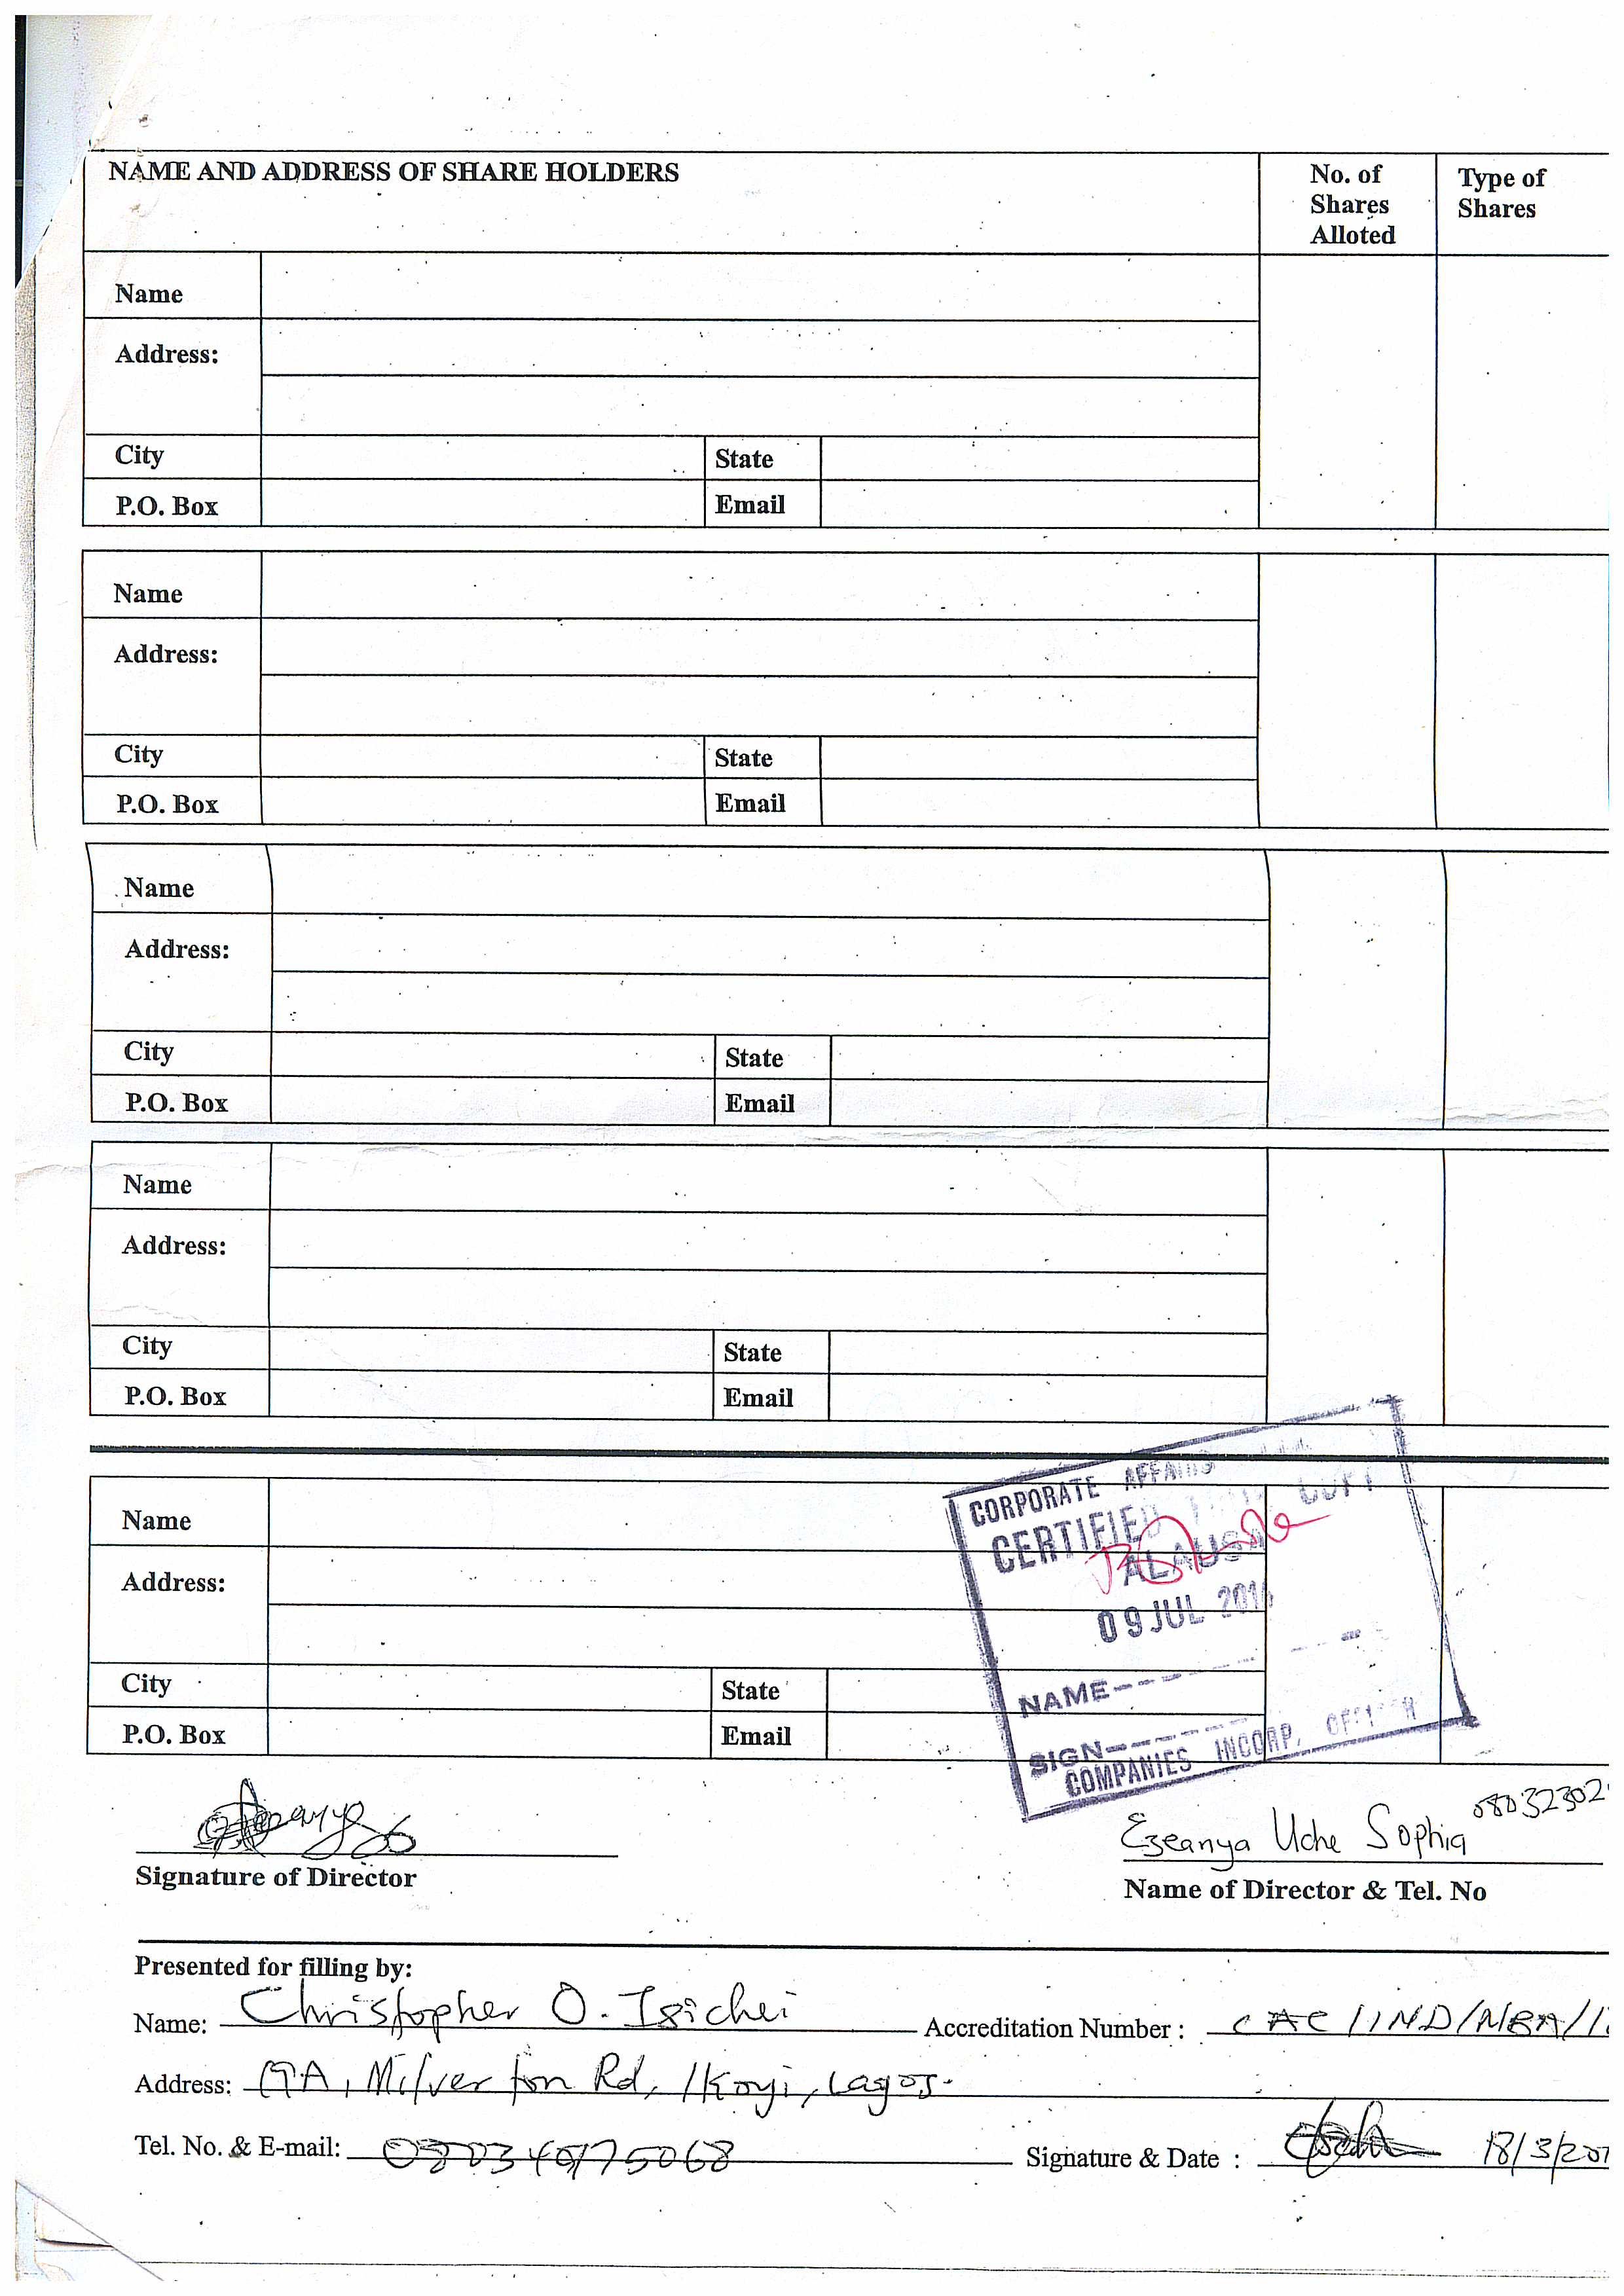 NAME AND ADDRESS OF SHARE HOLDERS
No. of Shares Alloted
Type of Shares
Name
Address:
City
State
P.O. Box
Email
Name
Address:
City
State
P.O. Box
Email
Name
Address:
City
State
P.O. Box
Email
Name
Address:
City
State
P.O. Box
Email
Name
Address:
City
State
P.O. Box
Email
CORPORATE AFFAIRS
CERTIFIED COPY
ALAUSA
09 JUL
NAME
SIGN
COMPANIES INCORP. OFFICER
Ezeanya Uche Sophia 08032302
Signature of Director
Name of Director & Tel. No
Presented for filling by:
Name: Christopher O. Isichei
Accreditation Number : CAC/IND/NBA/1
Address: 9A, Milverton Rd, Ikoyi, Lagos.
Tel. No. & E-mail:
Signature & Date : 18/3/201